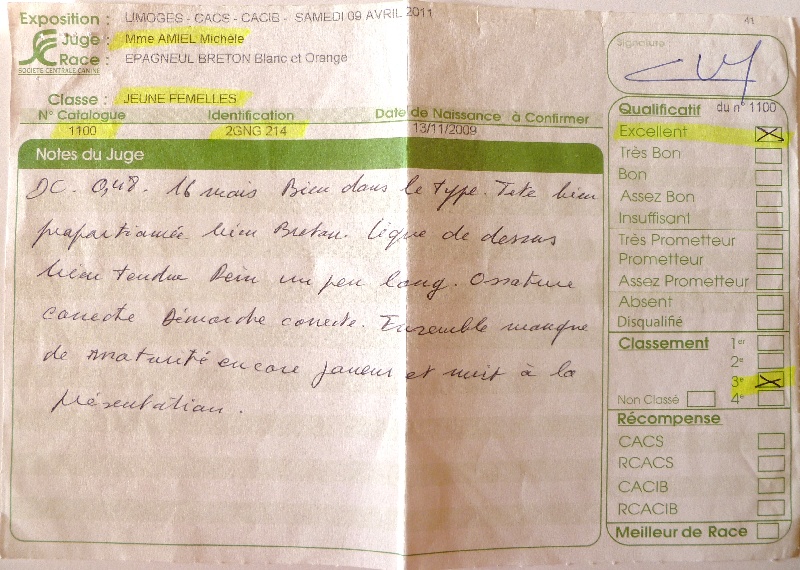 Exposition : LIMOGES - CACS - CACIB - SAMEDI 09 AVRIL 2011
Juge : Mme AMIEL Michèle
Race : EPAGNEUL BRETON Blanc et Orange
SOCIETE CENTRALE CANINE
Classe : JEUNE FEMELLES
N° Catalogue Identification Date de Naissance à Confirmer
1100 2GNG 214 13/11/2009
Notes du Juge
DC. 0,48. 16 mois Bien dans le type. Tete bien
proportionnée bien Breton. Ligne de dessus
bien tendue Rein un peu long. Ossature
correcte Démarche correcte. Ensemble manque
de maturité encore joueur et nuit à la
présentation.
41
Signature
Qualificatif du n° 1100
Excellent
Très Bon
Bon
Assez Bon
Insuffisant
Très Prometteur
Prometteur
Assez Prometteur
Absent
Disqualifié
Classement 1er
2e
3e
Non Classé 4e
Récompense
CACS
RCACS
CACIB
RCACIB
Meilleur de Race